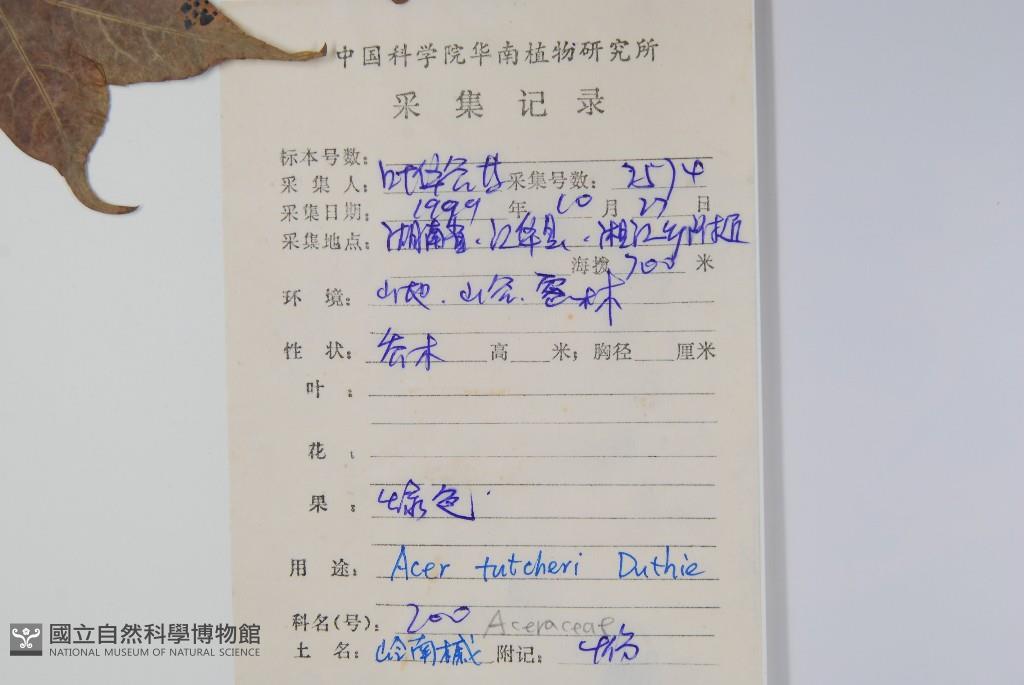 中国科学院华南植物研究所
采集记录
标本号数：
采集人：叶华谷 采集号数：2574
采集日期：1999年10月27日
采集地点：湖南省.江华县.湘江乡
海拨 700 米
环境：山地.山谷.密林
性状：乔木 高 米；胸径 厘米
叶：
花：
果：绿色.
用途：Acer tutcheri Duthie
科名(号)：200 Aceraceae
土名：岭南槭 附记：4份
國立自然科學博物館
NATIONAL MUSEUM OF NATURAL SCIENCE